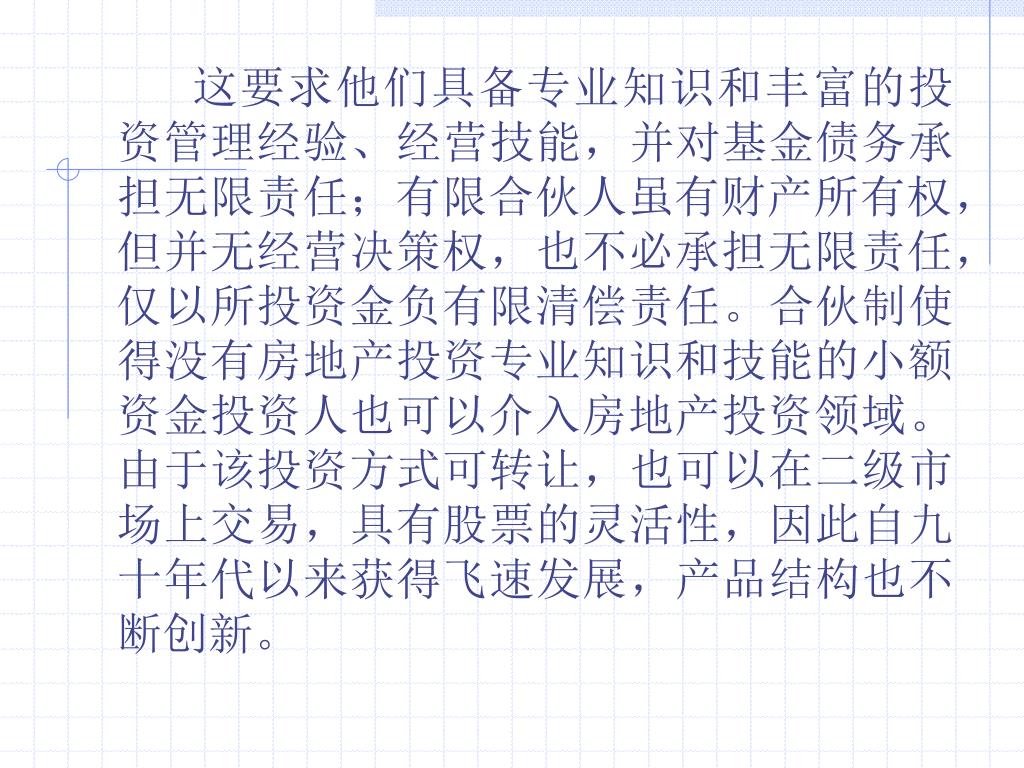 这要求他们具备专业知识和丰富的投
资管理经验、经营技能，并对基金债务承
担无限责任；有限合伙人虽有财产所有权，
但并无经营决策权，也不必承担无限责任，
仅以所投资金负有限清偿责任。合伙制使
得没有房地产投资专业知识和技能的小额
资金投资人也可以介入房地产投资领域。
由于该投资方式可转让，也可以在二级市
场上交易，具有股票的灵活性，因此自九
十年代以来获得飞速发展，产品结构也不
断创新。